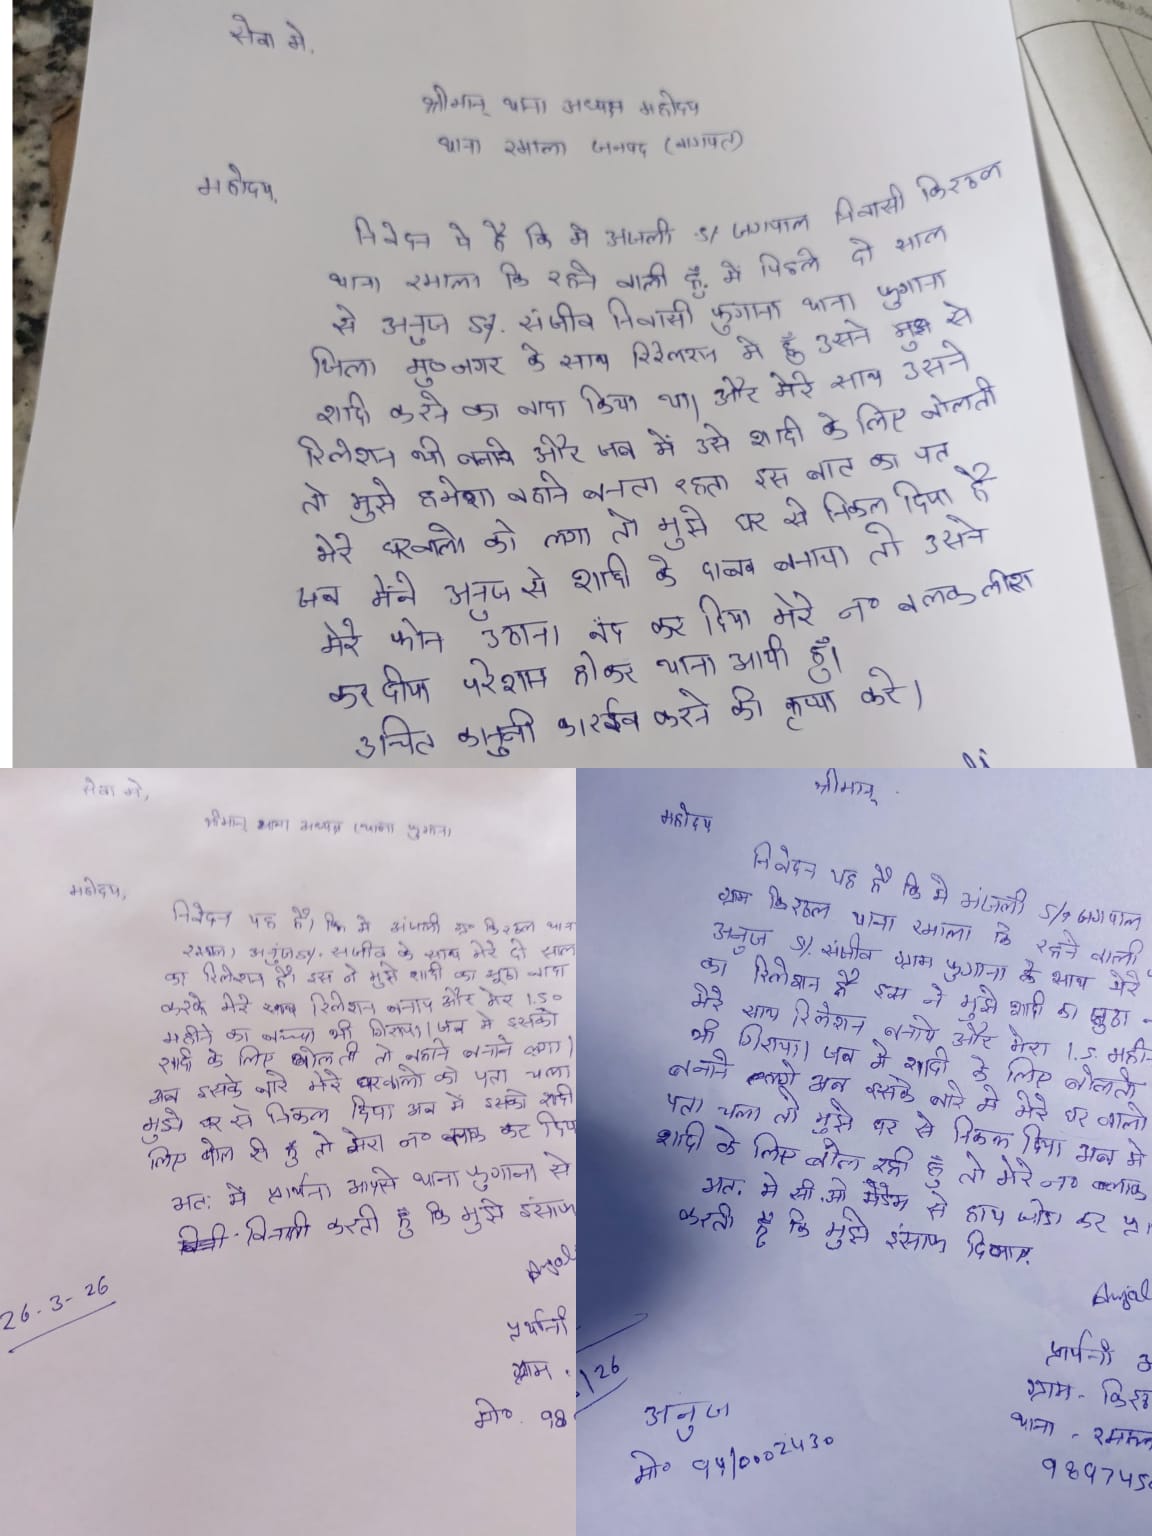 सेवा मे,
श्रीमान् थाना अध्यक्ष महोदय
थाना रमाला जनपद (बागपत)
महोदय,
निवेदन ये है कि मे अंजली S/ जगपाल निवासी किरठल
थाना रमाला कि रहने वाली हूँ. में पिछले दो साल
से अनुज S/. संजीव निवासी फुगाना थाना फुगाना
जिला मु०नगर के साथ रिलेशन मे हूँ उसने मुझ से
शादी करने का वादा किया था। और मेरे साथ उसने
रिलेशन भी बनाये और जब में उसे शादी के लिए बोलती
तो मुझे हमेशा बहाने बनता रहता इस बात का पत
मेरे घरवालो को लगा तो मुझे घर से निकल दिया है
जब मेंने अनुज से शादी के दाबव बनाया तो उसने
मेरे फोन उठाना बंद कर दिया मेरे न० बलक लीश
कर दीया परेशान होकर थाना आयी हूँ।
उचित कानुनी कारईव करने की कृप्या करे।
सेवा मे,
श्रीमान थाना अध्यक्ष (थाना फुगाना)
महोदय,
निवेदन यह है। कि मे अंजली ग्रा० किरठल थाना
रमाला) अनुज S/. संजीव के साथ मेरे दो साल
का रिलेशन है। इस ने मुझे शादी का झूठा वादा
करके मेरे साथ रिलेशन बनाये और मेरा 1.50
महीने का बच्चा भी गिराया। जब मे इसको
शादी के लिए बोलती तो बहाने बनाने लगा।
अब इसके बारे मेरे घरवालो को पता चला
मुझे घर से निकल दिया अब में इसको शादी
लिए बोल री हुं तो मेरा न० ब्लाक कर दिया
अत: में प्रार्थना आपसे थाना फुगाना से
विनती करती हूँ कि मुझे इंसाफ
26-3-26
प्रार्थनी
ग्राम.
मो०. 98
श्रीमान्
महोदय
निवेदन यह है कि मे अंजली S/o जगपाल
ग्राम किरठल थाना रमाला कि रहने वाली
अनुज S/. संजीव ग्राम फुगाना के साथ मेरे
का रिलेशन है इस ने मुझे शादी का झुठा
मेरे साथ रिलेशन बनाये और मेरा 1.5. महीन
भी गिराया। जब मे शादी के लिए बोलती
बनाने लगे अब इसके बारे मे मेरे घर वालो
पता चला तो मुझे घर से निकल दिया अब मे
शादी के लिए बोल रही हूँ तो मेरे न० ब्लाक
अत. मे सी.ओ मैडम से हाथ जोडा कर प्रा
करती हूँ कि मुझे इंसाफ दिलाए.
Anjal
/26
प्रार्थनी अ
ग्राम- किरठ
थाना - रमाल
989745
अनुज
मो०